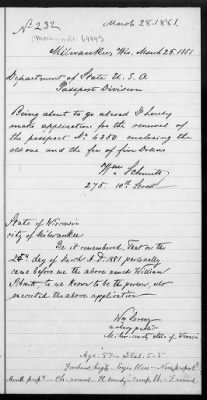 No 232
March 28. 1881.
Milwaukee, Wis. March 25 1881
Department of State U. S. A
Passport Division
Being about to go abroad I hereby
make application for the renewal of
the passport No 4350 enclosing the
old one and the fee of five Dollars
Wm Schmitt
275 10th Street
State of Wisconsin
city of Milwaukee
Be it remembered, That on the
25th day of March A.D. 1881 personally
came before me the above named William
Schmitt, to me known to be the person, who
executed the above application
notary public
Age 57 Stat. 5-5
Forehead high Eyes Blue